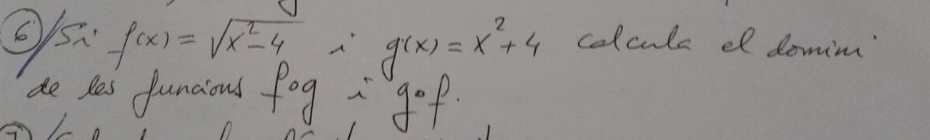 6/ Si f(x) = √x²-4 i g(x) = x²+4 calcula el domini
de les funcions fog i gof.